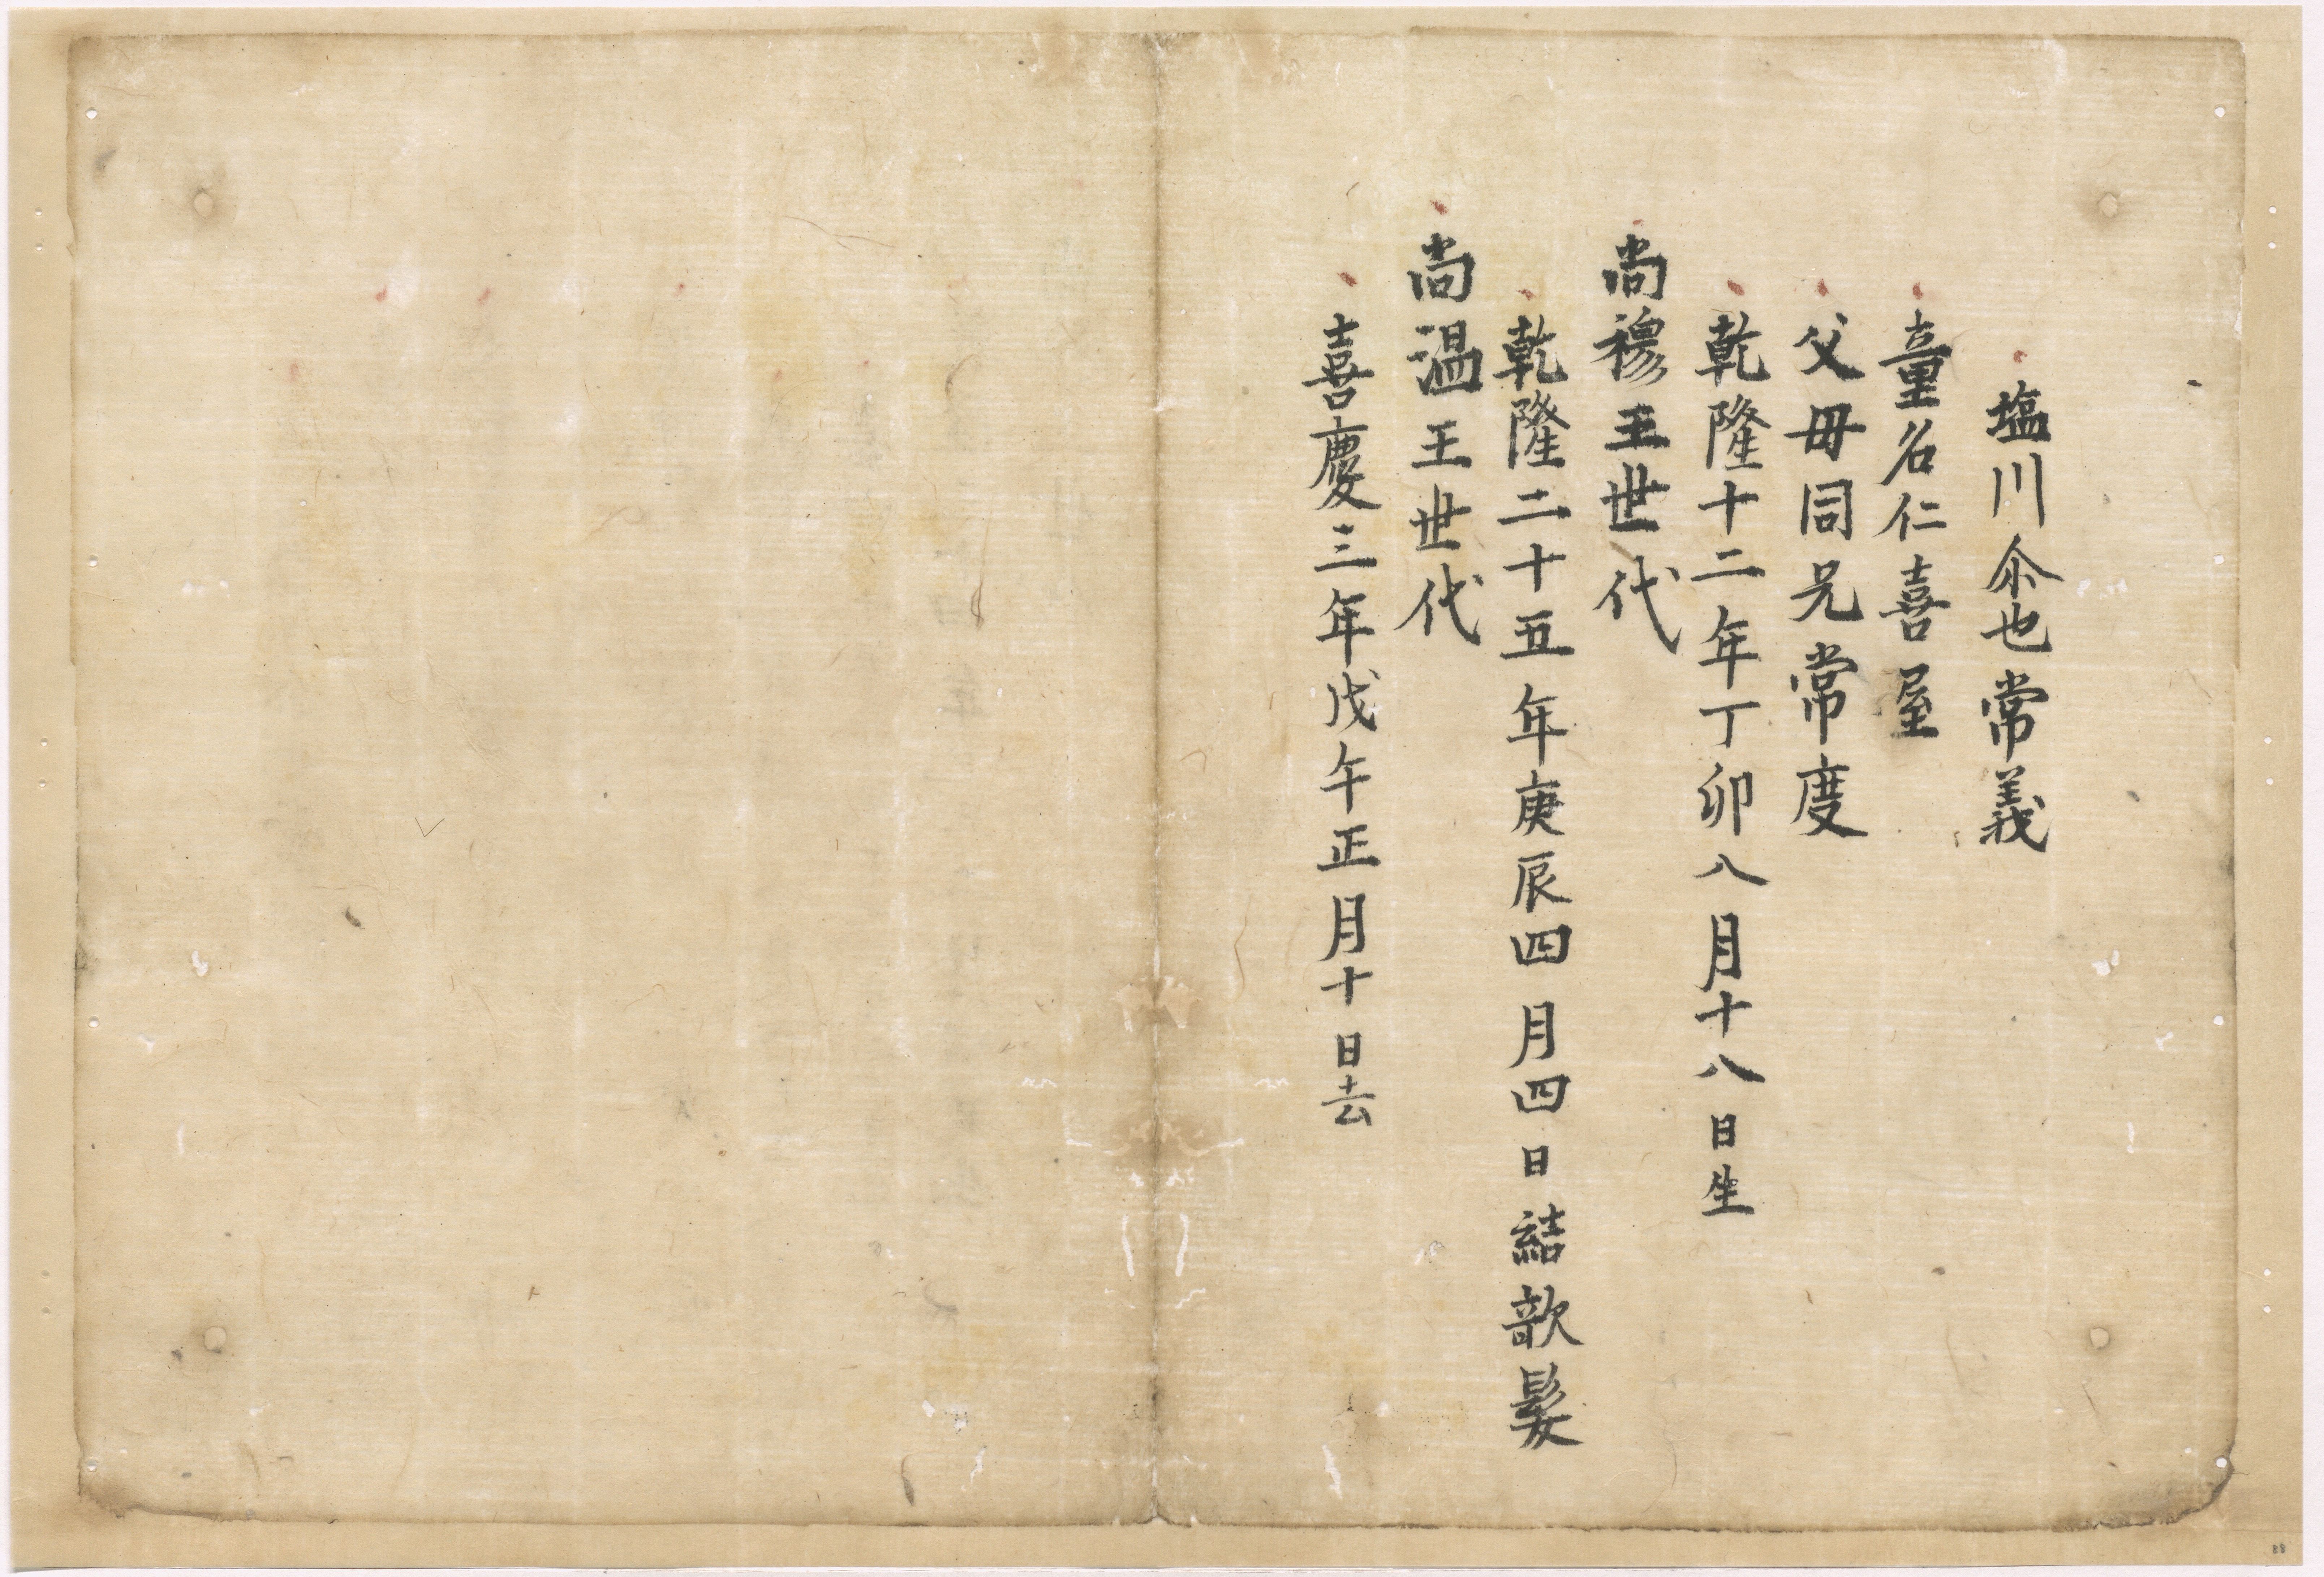 塩川尒也常義
童名仁喜屋
父毋同兄常度
乾隆十二年丁卯八月十八日生
尚穆王世代
乾隆二十五年庚辰四月四日結欹髪
尚温王世代
喜慶三年戊午正月十日去